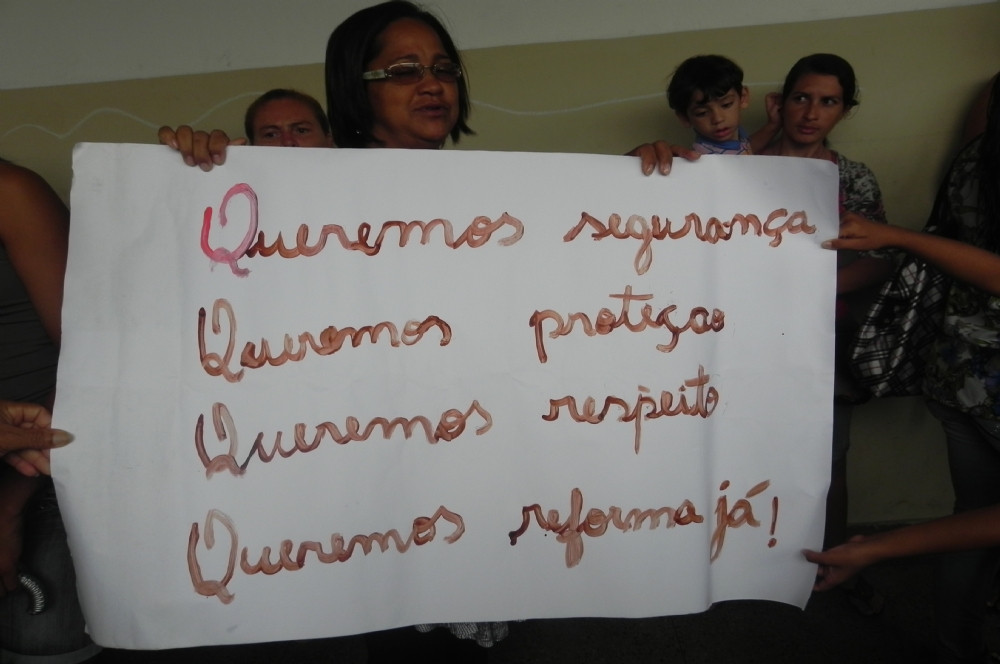 Queremos segurança
Queremos proteçao
Queremos respeito
Queremos reforma já!